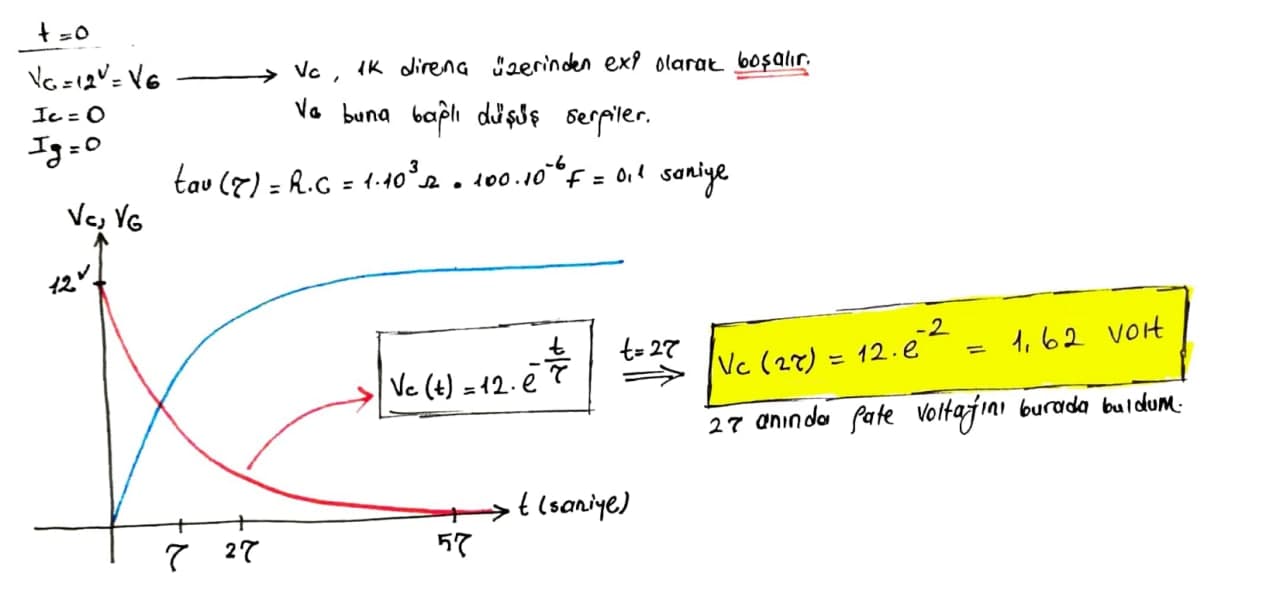 t=0
Vc=12V=VG → Vc, 1K direnç üzerinden exp olarak boşalır.
Ic=0
VG buna bağlı düşüş sergiler.
Ig=0
tau(τ) = R.C = 1.10³Ω . 100.10⁻⁶F = 0,1 saniye
Vc, VG
12V
Vc(t) = 12.e^(-t/τ)
t=2τ
⇒
Vc(2τ) = 12.e⁻² = 1,62 volt
2τ anında gate voltajını burada buldum.
t (saniye)
τ 2τ 5τ